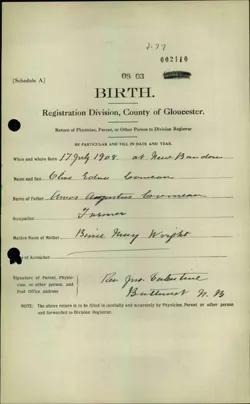 277
002110
[Schedule A.]
08 03
BIRTH.
Registration Division, County of Gloucester.
Return of Physician, Parent, or Other Person to Division Registrar
BE PARTICULAR AND FILL IN DATE AND YEAR.
When and where born 17 July 1908 at New Bandon
Name and Sex Edna Comeau
Name of Father Amos Augustus Comeau
Occupation Farmer
Maiden Name of Mother Mary Wright
of Accoucheur
Signature of Parent, Physician, or other person, and Post Office address
Rev Jno.
Bathurst N B
NOTE: The above return is to be filled in carefully and accurately by Physician, Parent or other person
and forwarded to Division Registrar.